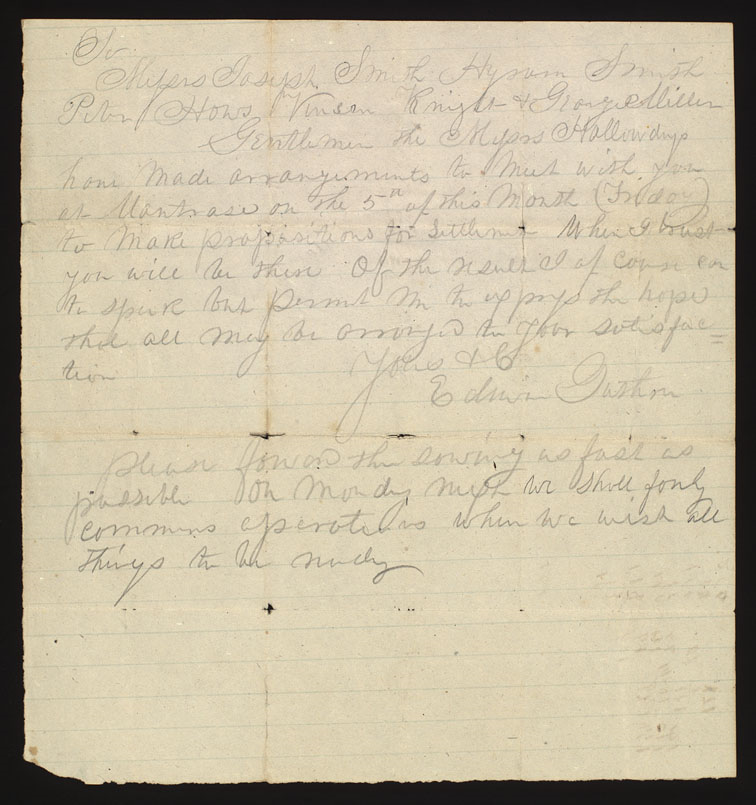 To
Messrs Joseph Smith Hyrum Smith
Peter Haws Vinson Knight & George Miller
Gentlemen the Messrs Holloways
have made arrangements to meet with you
at Montrose on the 5th of this Month (Friday)
to make propositions for settlement When I trust
you will be there Of the result I of course
to speak but permit me to express the hope
that all may be arranged to your satisfac=
tion
Yours & C
Edwin
please forward the sowing as fast as
possible On Monday next we shall
commence operations when we wish all
things to be ready